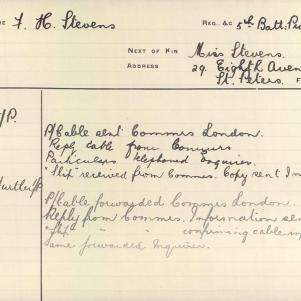 F. H. Stevens REG. &C 5th Batt.
NEXT OF KIN Miss Stevens.
ADDRESS 29 Eighth Aven
St. Peters.
/P.
P/Cable sent Commrs London.
Reply cable from Commrs
Particulars telephoned Inquirer.
"Slip" received from Commrs. Copy sent In
P/Cable forwarded Commrs London.
Reply from Commrs. Information sen
"Slip" " " confirming cable
Same forwarded Inquirer.